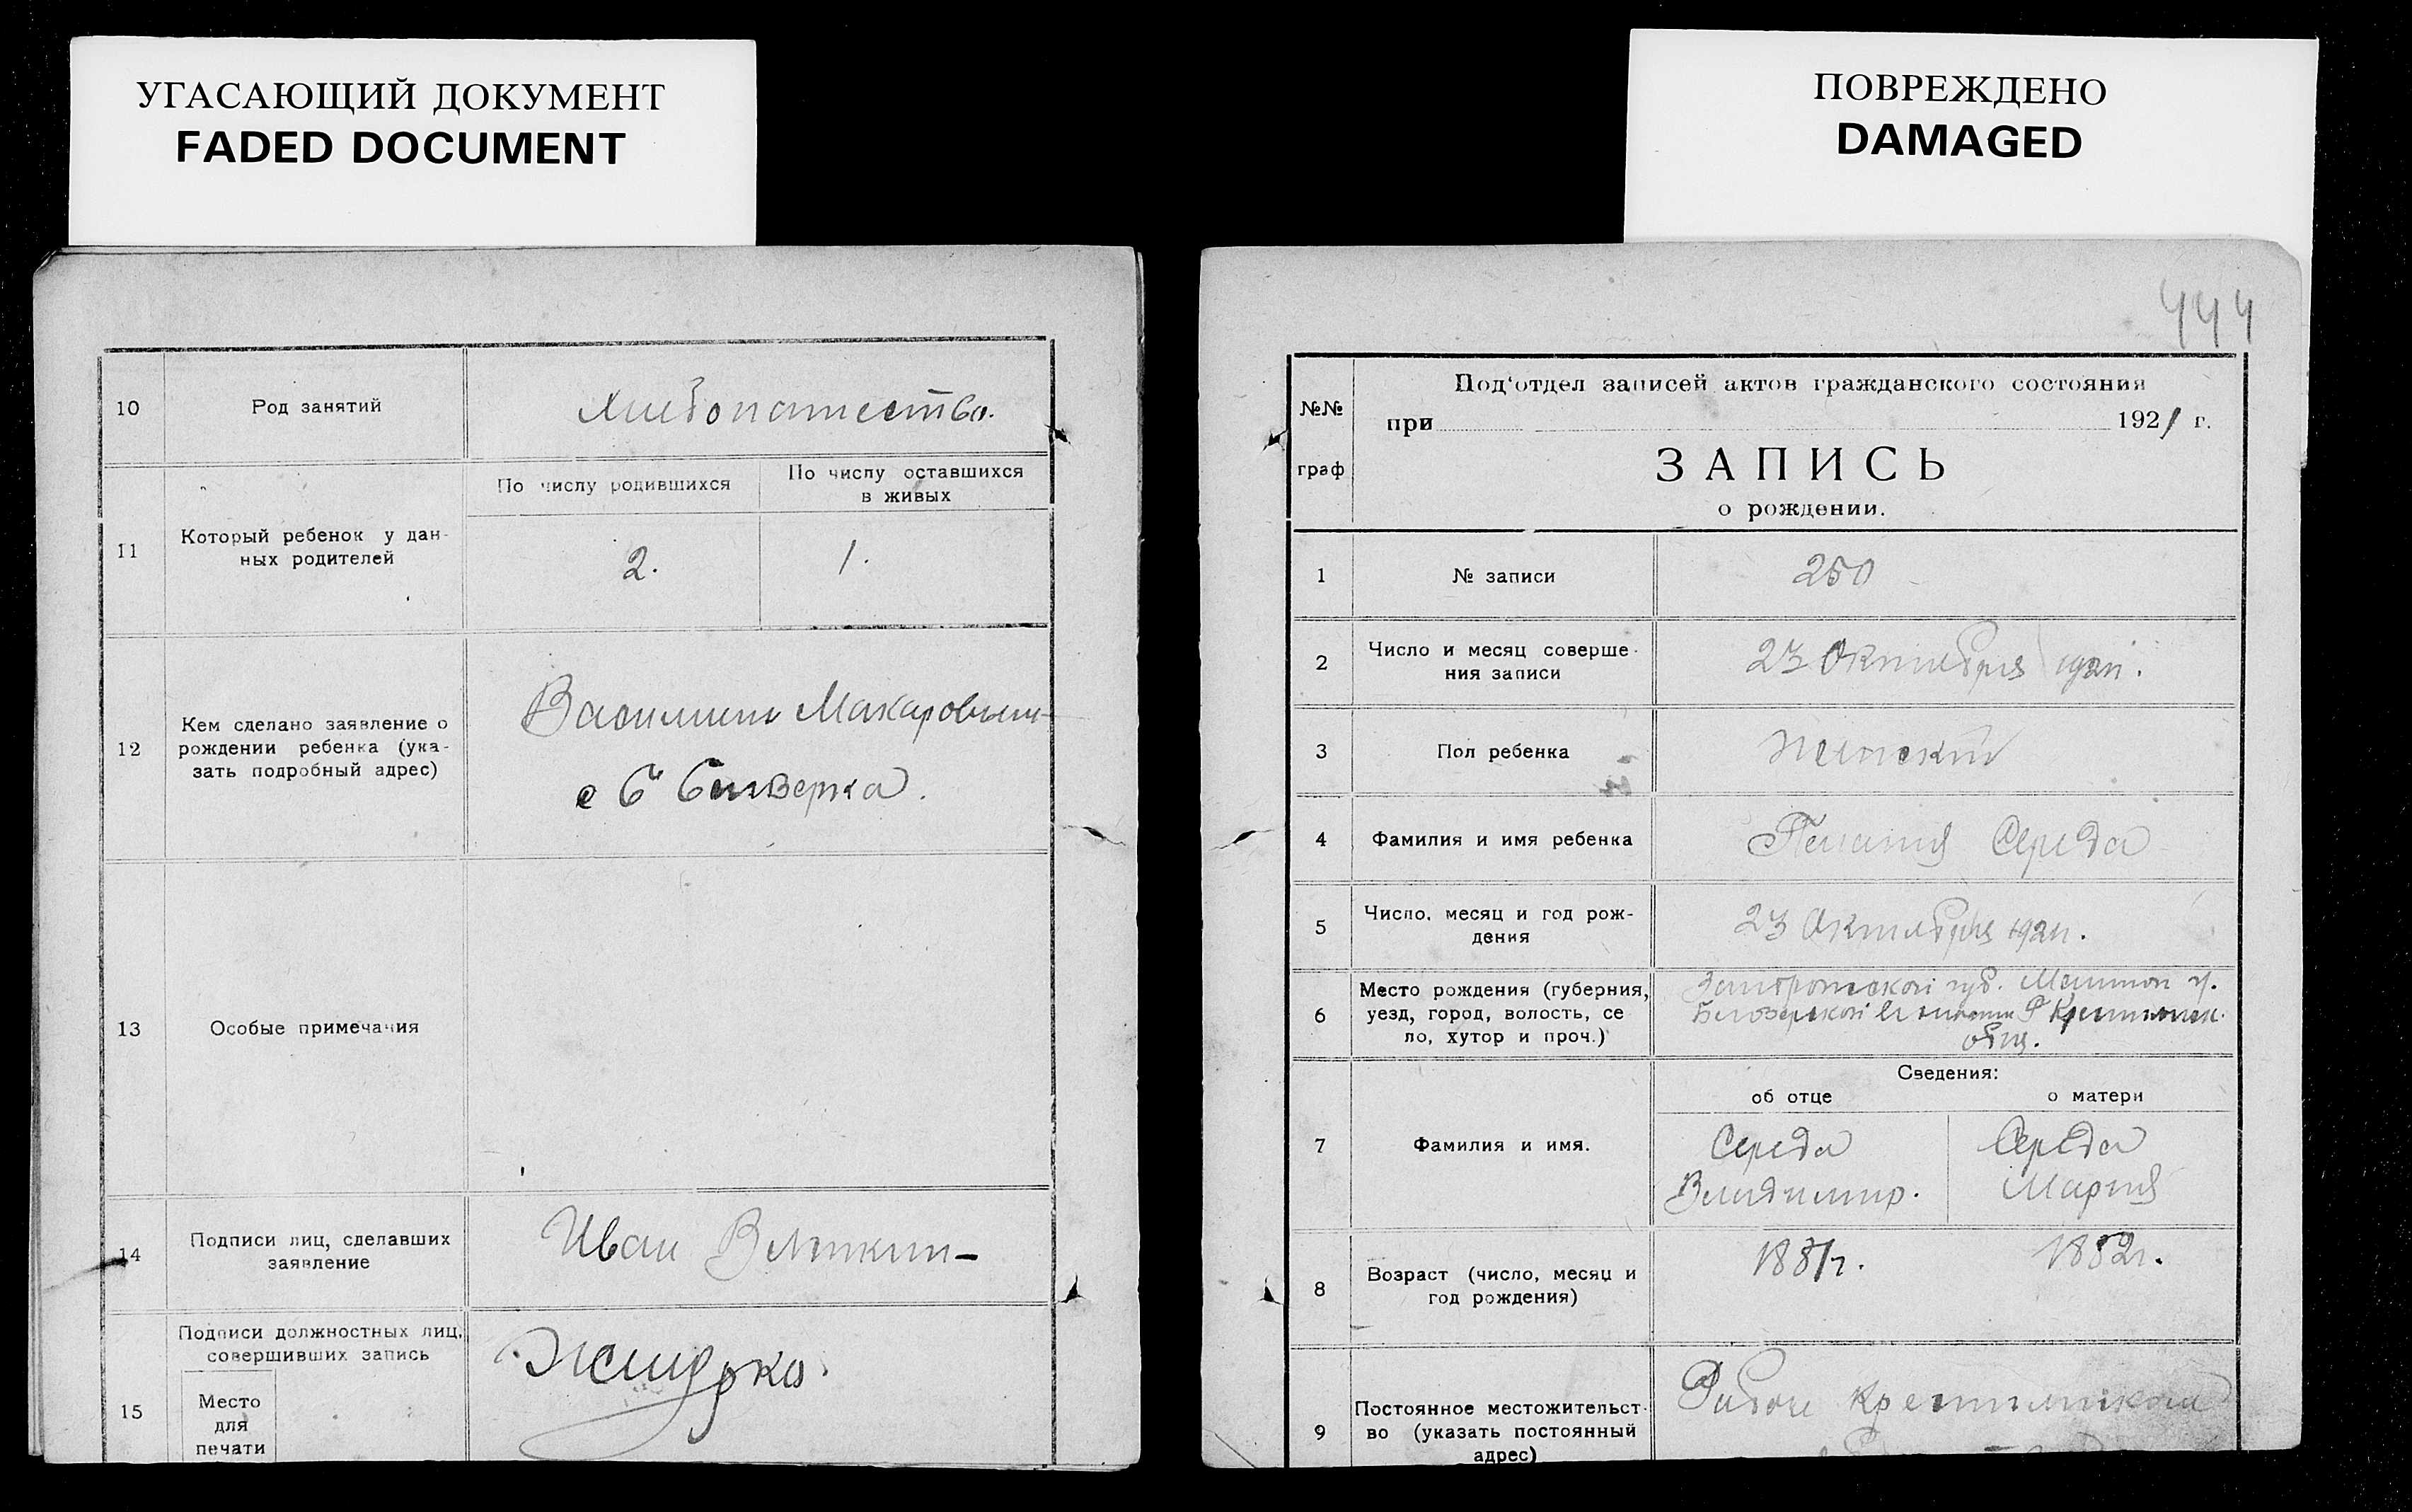 УГАСАЮЩИЙ ДОКУМЕНТ
FADED DOCUMENT
10
Род занятий
Хлебопашество.
11
Который ребенок у дан-
ных родителей
По числу родившихся
По числу оставшихся
в живых
2.
1.
12
Кем сделано заявление о
рождении ребенка (ука-
зать подробный адрес)
Василием Макаровым
с Б
13
Особые примечания
14
Подписи лиц, сделавших
заявление
Иван
15
Подписи должностных лиц,
совершивших запись
Место
для
печати
ПОВРЕЖДЕНО
DAMAGED
444
№№
граф
Под'отдел записей актов гражданского состояния
при 1921 г.
ЗАПИСЬ
о рождении.
1
№ записи
250
2
Число и месяц соверше-
ния записи
23 Октября 1921.
3
Пол ребенка
Женский
4
Фамилия и имя ребенка
Пелагия Середа
5
Число, месяц и год рож-
дения
23 Октября 1921.
6
Место рождения (губерния,
уезд, город, волость, се
ло, хутор и проч.)
Запорожской губ. у.
Белозерской
общ.
Сведения:
об отце
о матери
7
Фамилия и имя.
Середа
Владимир.
Середа
Мария
8
Возраст (число, месяц и
год рождения)
1881г.
1882г.
9
Постоянное местожительст-
во (указать постоянный
адрес)